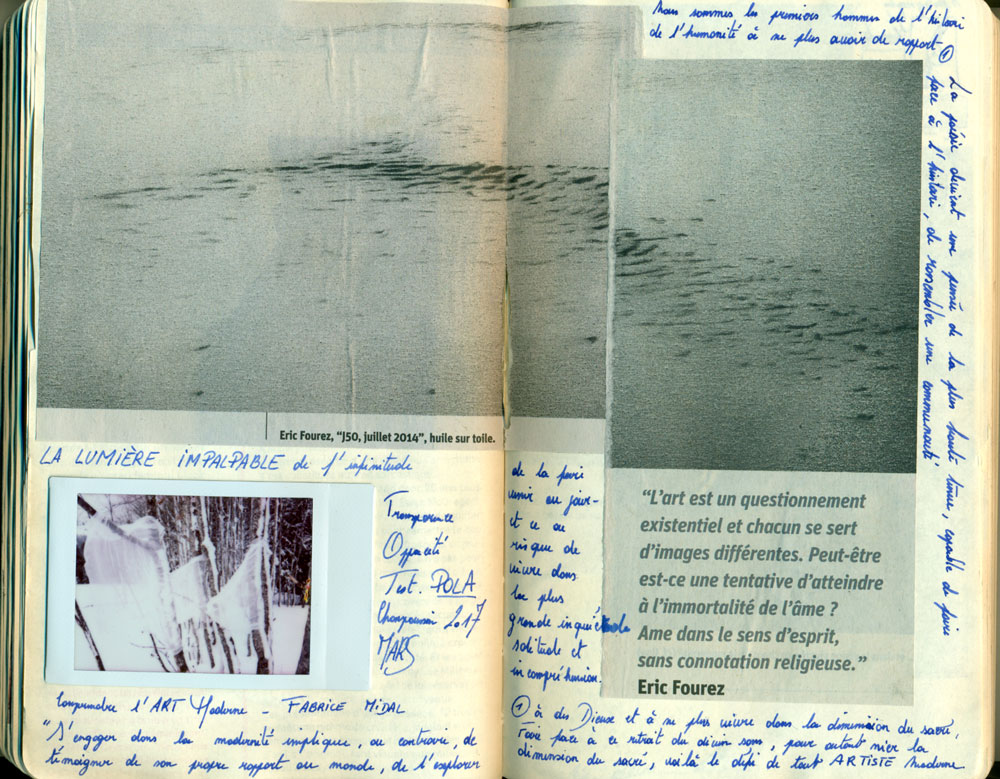 Eric Fourez, "J50, juillet 2014", huile sur toile.
LA LUMIÈRE IMPALPABLE de l'infinitude
Transparence
Opacité
Test. POLA
2017
MARS
Comprendre l'ART Moderne - FABRICE MIDAL
"S'engager dans la modernité implique, au contraire, de
témoigner de son propre rapport au monde, de l'explorer
de la faire
unir au jour-
et ce au
risque de
vivre dans
la plus
grande inquiétude
solitude et
incompréhension.
Nous sommes les premiers hommes de l'histoire
de l'humanité à ne plus avoir de rapport ①
La poésie devient une pensée de la plus haute tenue, capable de faire
face à l'histoire, de rassembler une communauté
"L'art est un questionnement
existentiel et chacun se sert
d'images différentes. Peut-être
est-ce une tentative d'atteindre
à l'immortalité de l'âme ?
Ame dans le sens d'esprit,
sans connotation religieuse."
Eric Fourez
① à des Dieux et à ne plus vivre dans la dimension du sacré,
Faire face à ce retrait du divin sans, pour autant nier la
dimension du sacré, voilà le défi de tout ARTISTE Moderne